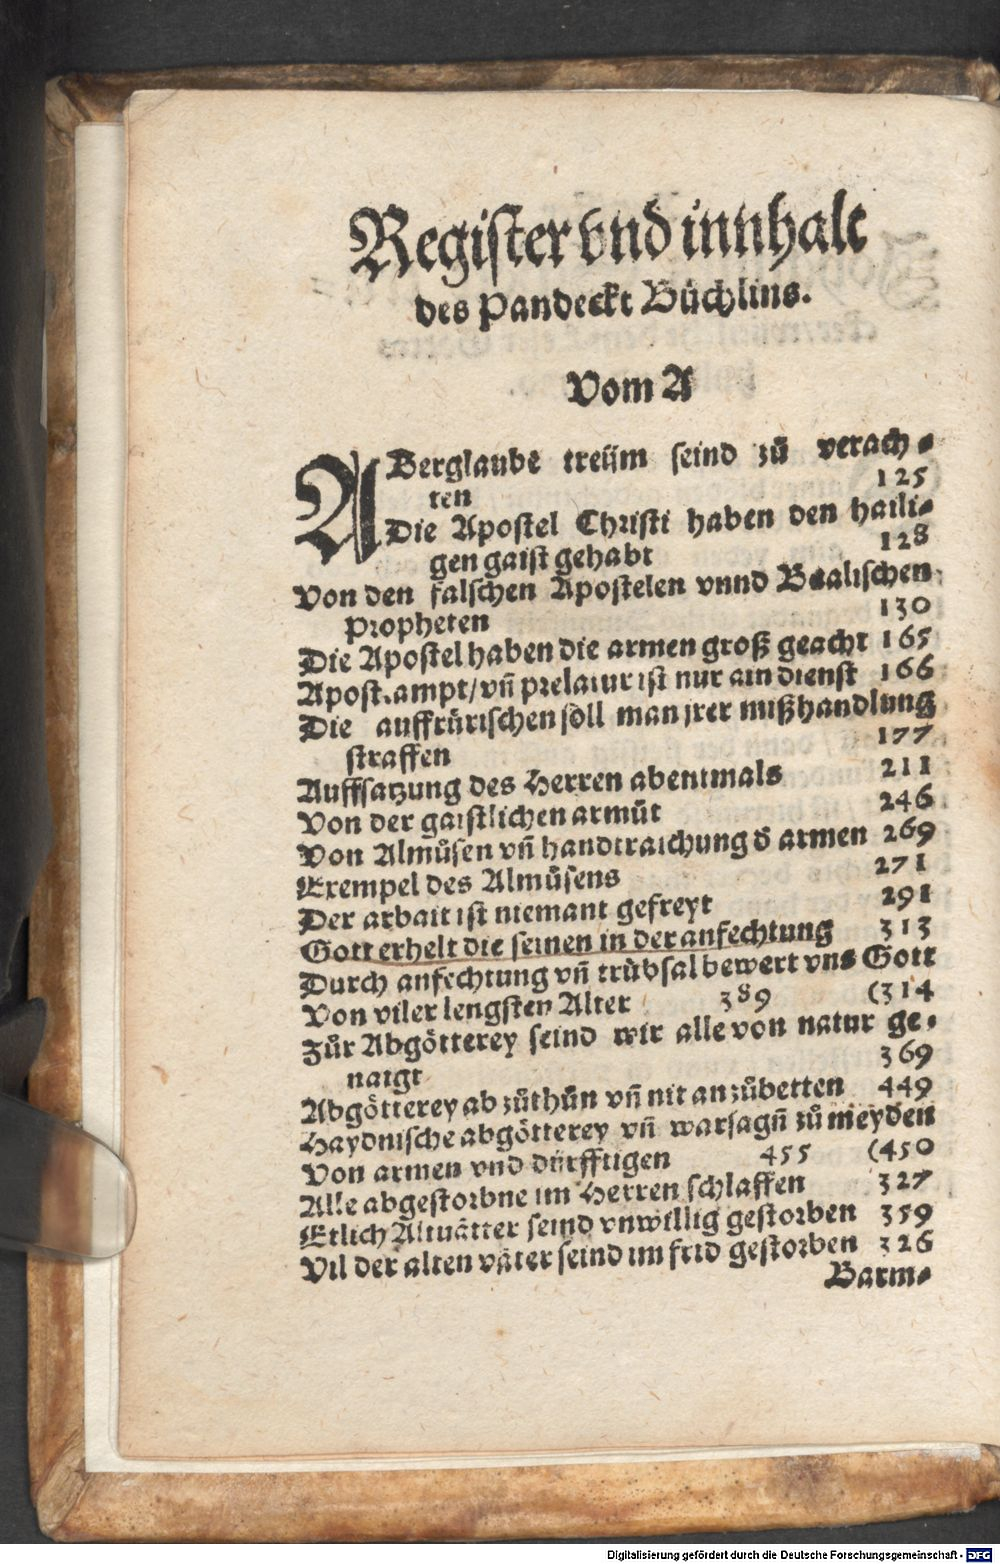 Register vnd innhalt
des Pandeckt Büchlins.
Vom A
ABerglaube treüm seind zů verach-
ten 125
Die Apostel Christi haben den haili-
gen gaist gehabt 128
Von den falschen Apostelen vnnd Baalischen
Propheten 130
Die Apostel haben die armen groß geacht 165
Apostampt/vñ prelatur ist nur ain dienst 166
Die auffrürischen soll man jrer mißhandlung
straffen 177
Auffsatzung des Herren abentmals 211
Von der gaistlichen armůt 246
Von Almůsen vñ handtraichung d̄ armen 269
Exempel des Almůsens 271
Der arbait ist niemant gefreyt 291
Gott erhelt die seinen in der anfechtung 313
Durch anfechtung vñ trübsal bewert vns Gott
Von viler lengsten Alter 389 (314
Zůr Abgötterey seind wir alle von natur ge-
naigt 369
Abgötterey ab zůthůn vñ nit an zůbetten 449
Haydnische abgötterey vñ warsagñ zů meyden
Von armen vnd dürfftigen 455 (450
Alle abgestorbne im Herren schlaffen 327
Etlich Altuätter seind vnwillig gestorben 359
Vil der alten väter seind im frid gestorben 326
Barm-
Digitalisierung gefördert durch die Deutsche Forschungsgemeinschaft - DFG